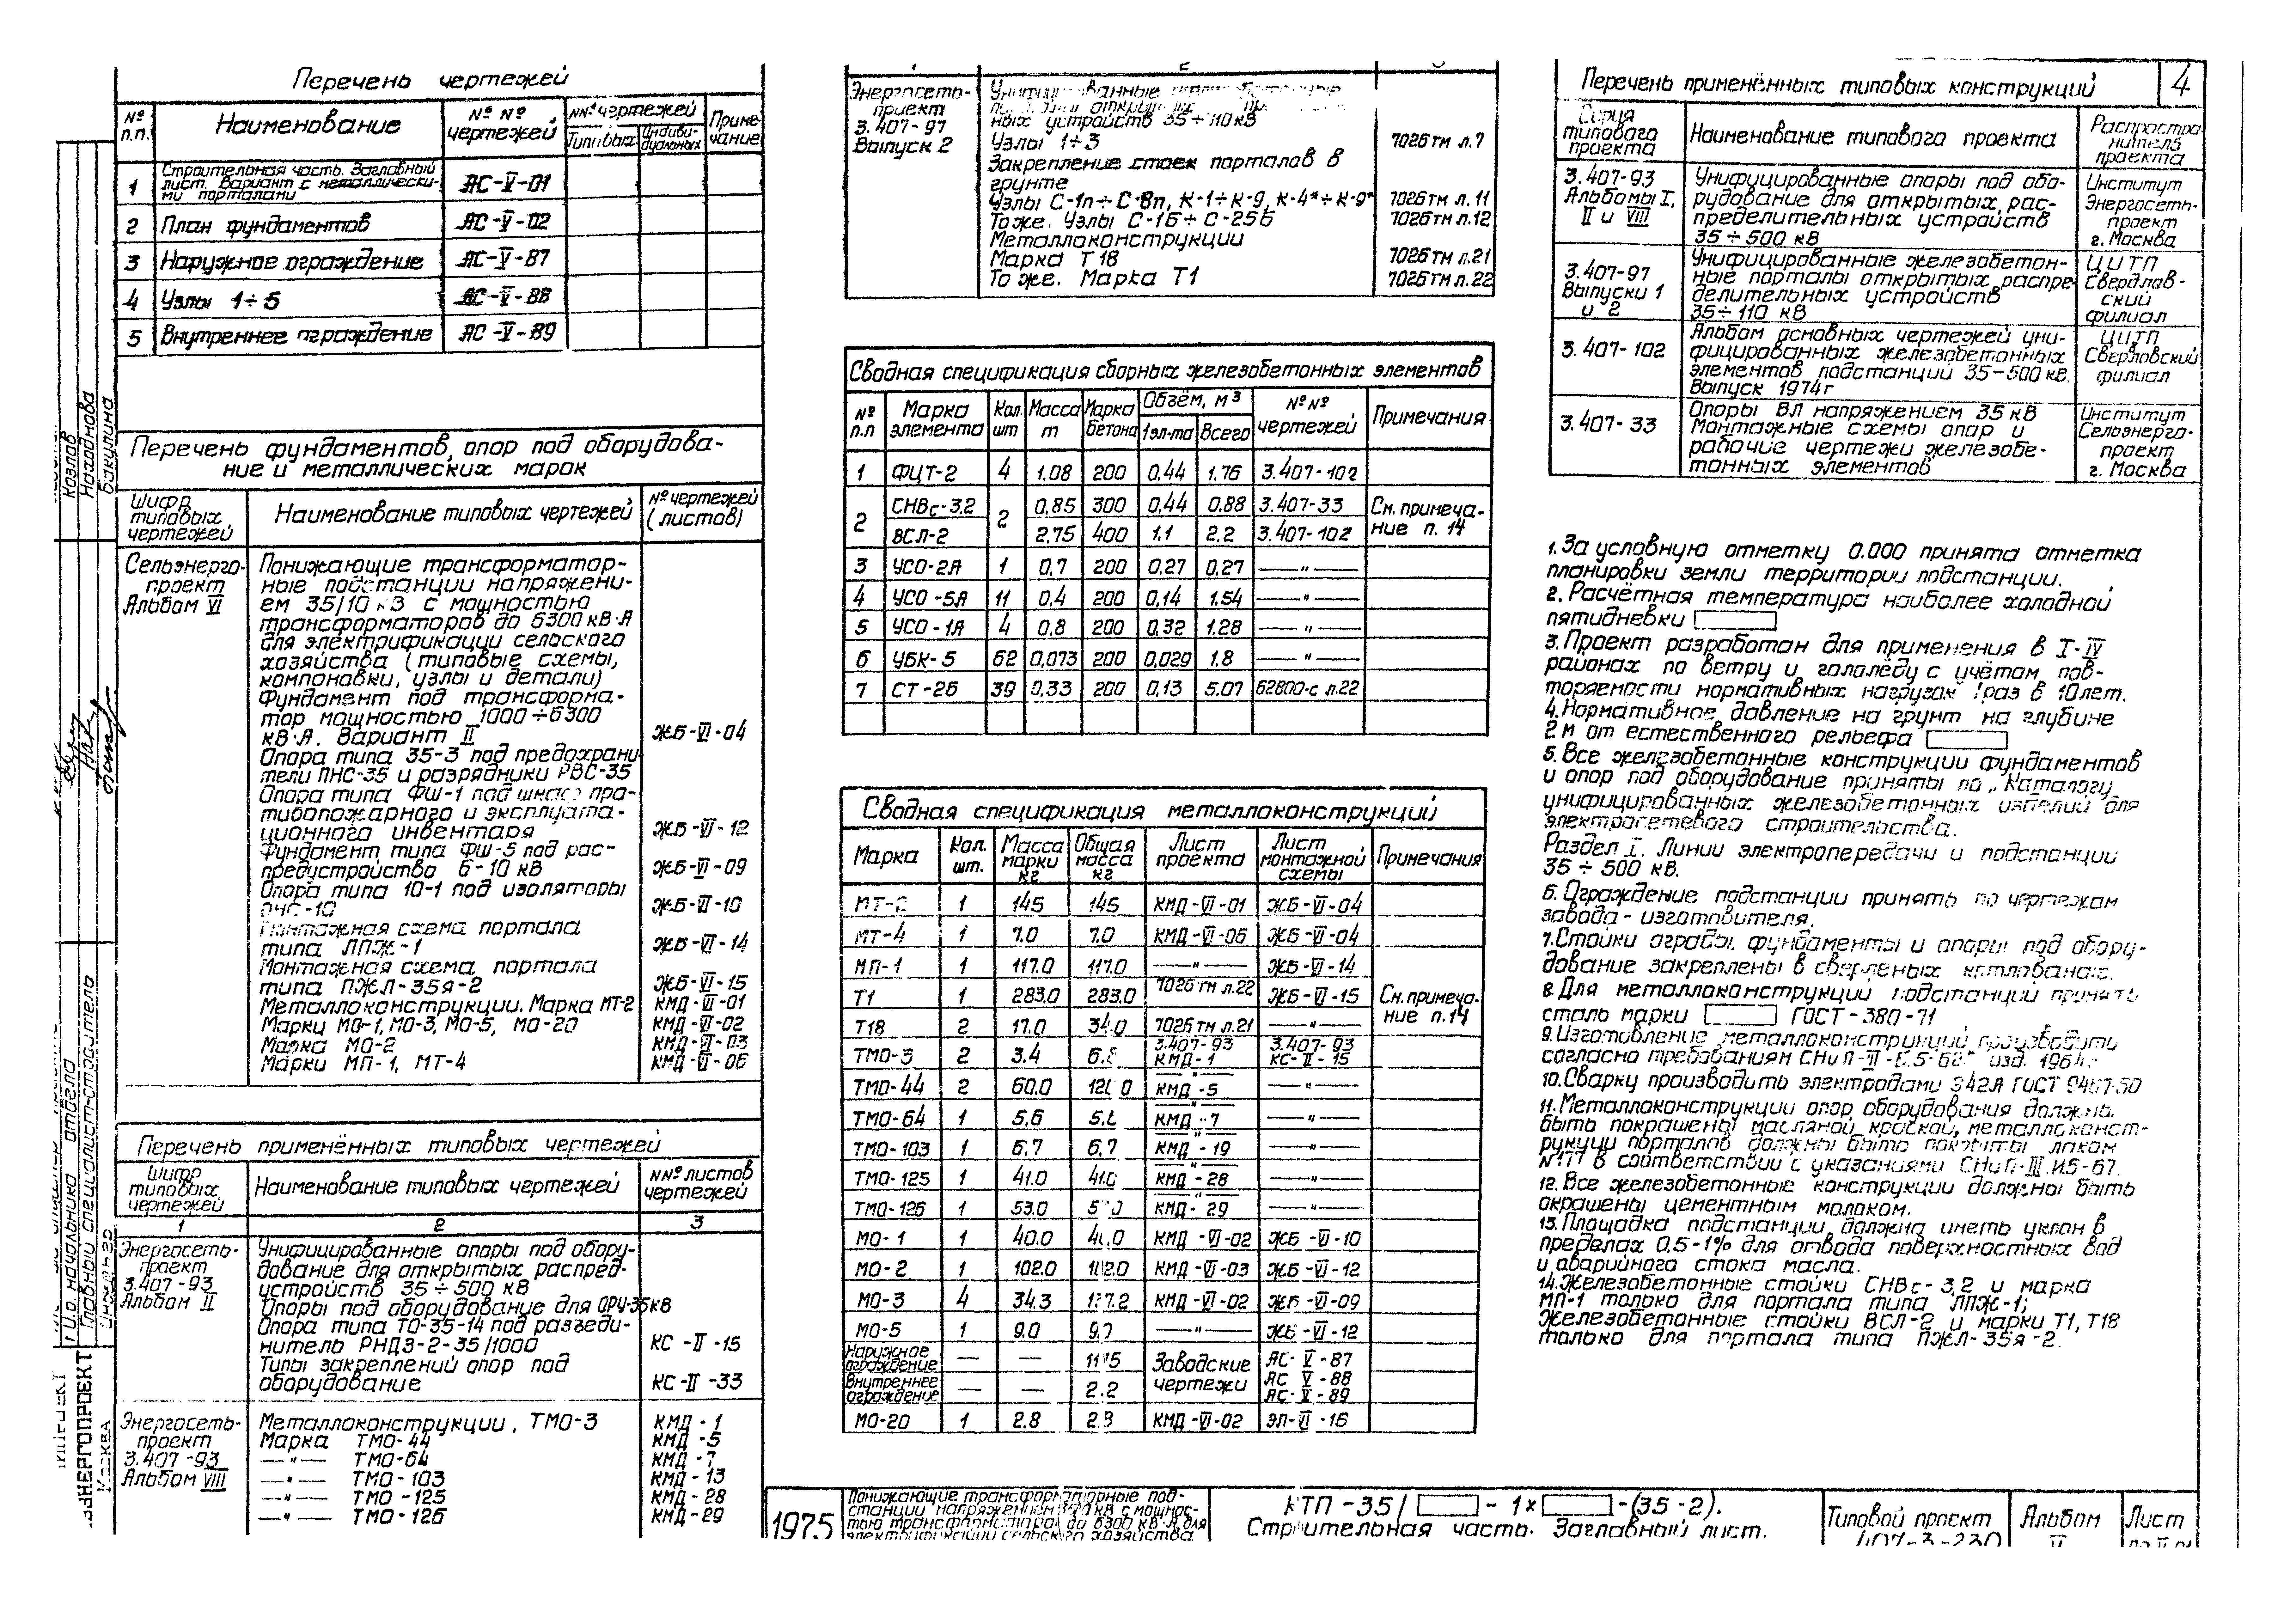 Перечень чертежей
№ п.п. Наименование №№ чертежей №№ чертежей Приме-чание
Типовых Индиви-дуальных
1 Строительная часть. Заглавный лист. Вариант с металлически-ми порталами АС-V-01
2 План фундаментов АС-V-02
3 Наружное ограждение АС-V-87
4 Узлы 1÷5 АС-V-88
5 Внутреннее ограждение АС-V-89
Перечень фундаментов, опор под оборудова-
ние и металлических марок
Шифр типовых чертежей Наименование типовых чертежей № чертежей (листов)
Сельэнерго- Понижающие трансформатор-
проект ные подстанции напряжени-
Альбом VI ем 35/10 кВ с мощностью
трансформаторов до 6300 кВ·А
для электрификации сельского
хозяйства (типовые схемы,
компоновки, узлы и детали)
Фундамент под трансформа-
тор мощностью 1000÷6300
кВ·А. Вариант II ЖБ-VI-04
Опора типа 35-3 под предохрани-
тели ПНС-35 и разрядники РВС-35
Опора типа ФШ-1 под шкаф про-
тивопожарного и эксплуата-
ционного инвентаря ЖБ-VI-12
Фундамент типа ФШ-5 под рас-
предустройство 6-10 кВ ЖБ-VI-09
Опора типа 10-1 под изоляторы
-10 ЖБ-VI-10
Монтажная схема портала
типа ЛПЖ-1 ЖБ-VI-14
Монтажная схема портала
типа ПЖЛ-35я-2 ЖБ-VI-15
Металлоконструкции. Марка МТ-2 КМД-VI-01
Марки МО-1, МО-3, МО-5, МО-20 КМД-VI-02
Марка МО-2 КМД-VI-03
Марки МП-1, МТ-4 КМД-VI-06
Перечень применённых типовых чертежей
Шифр типовых чертежей Наименование типовых чертежей №№ листов чертежей
1 2 3
Энергосеть- Унифицированные опоры под обору-
проект дование для открытых распред-
3.407-93 устройств 35÷500 кВ
Альбом II Опоры под оборудование для ОРУ-35кВ
Опора типа ТО-35-14 под разъеди-
нитель РНДЗ-2-35/1000 КС-II-15
Типы закреплений опор под
оборудование КС-II-33
Энергосеть- Металлоконструкции, ТМО-3 КМД-1
проект Марка ТМО-44 КМД-5
3.407-93 —"— ТМО-64 КМД-7
Альбом VIII —"— ТМО-103 КМД-13
—"— ТМО-125 КМД-28
—"— ТМО-126 КМД-29
Козлов
Находнова
Бакулина
И.о. начальника отдела
Главный специалист-строитель
Инженер
Москва
Энергосеть- Унифицированные
проект
3.407-97 ных устройств 35÷110кВ
Выпуск 2 Узлы 1÷3 7026тм л.7
Закрепление стоек порталов в
грунте
Узлы С-1п÷С-8п, К-1÷К-9, К-4*÷К-9* 7026тм л.11
То же. Узлы С-1б÷С-25б 7026тм л.12
Металлоконструкции
Марка Т18 7026тм л.21
То же. Марка Т1 7026тм л.22
Сводная спецификация сборных железобетонных элементов
№ п.п Марка элемента Кол. шт Масса т Марка бетона Объём, м³ №№ чертежей Примечания
1эл-та Всего
1 ФЦТ-2 4 1.08 200 0,44 1.76 3.407-102
2 СНВс-3,2 2 0,85 300 0,44 0.88 3.407-33 См. примеча-
ВСЛ-2 2,75 400 1.1 2,2 3.407-102 ние п. 14
3 УСО-2А 1 0,7 200 0,27 0,27 —"—
4 УСО-5А 11 0.4 200 0,14 1.54 —"—
5 УСО-1А 4 0.8 200 0.32 1.28 —"—
6 УБК-5 62 0,073 200 0,029 1.8 —"—
7 СТ-2б 39 0,33 200 0,13 5,07 62800-с л.22
Сводная спецификация металлоконструкций
Марка Кол. шт. Масса марки кг Общая масса кг Лист проекта Лист монтажной схемы Примечания
МТ-2 1 145 145 КМД-VI-01 ЖБ-VI-04
МТ-4 1 7.0 7.0 КМД-VI-06 ЖБ-VI-04
МП-1 1 117.0 117.0 —"— ЖБ-VI-14
Т1 1 283,0 283,0 7026 тм л.22 ЖБ-VI-15 См. примеча-
Т18 2 17.0 34.0 7026 тм л.21 —"— ние п.14
ТМО-3 2 3.4 6.8 3.407-93 КМД-1 3.407-93 КС-II-15
ТМО-44 2 60.0 120.0 —"— КМД-5 —"—
ТМО-64 1 5.6 5.6 —"— КМД-7 —"—
ТМО-103 1 6.7 6,7 —"— КМД-19 —"—
ТМО-125 1 41.0 41.0 —"— КМД-28 —"—
ТМО-126 1 53.0 —"— КМД-29 —"—
МО-1 1 40.0 40.0 КМД-VI-02 ЖБ-VI-10
МО-2 1 102.0 102.0 КМД-VI-03 ЖБ-VI-12
МО-3 4 34.3 137.2 КМД-VI-02 ЖБ-VI-09
МО-5 1 9.0 9.0 —"— ЖБ-VI-12
Наружное ограждение — — Заводские АС-V-87
чертежи АС V-88
Внутреннее ограждение — — 2.2 АС-V-89
МО-20 1 2.8 2.8 КМД-VI-02 ЭЛ-VI-16
Перечень применённых типовых конструкций 4
Серия типового проекта Наименование типового проекта Распростра-нитель проекта
3.407-93 Унифицированные опоры под обо- Институт
Альбомы I, рудование для открытых рас- Энергосеть-
II и VIII пределительных устройств проект
35÷500 кВ г. Москва
3.407-97 Унифицированные железобетон- ЦИТП
Выпуски 1 ные порталы открытых распре- Свердлов-
и 2 делительных устройств ский
35÷110 кВ филиал
3.407-102 Альбом основных чертежей уни- ЦИТП
фицированных железобетонных Свердловский
элементов подстанций 35-500 кВ. филиал
Выпуск 1974г
3.407-33 Опоры ВЛ напряжением 35 кВ Институт
Монтажные схемы опор и Сельэнерго-
рабочие чертежи железобе- проект
тонных элементов г. Москва
1. За условную отметку 0.000 принята отметка
планировки земли территории подстанции.
2. Расчётная температура наиболее холодной
пятидневки
3. Проект разработан для применения в I-IV
районах по ветру и гололёду с учётом пов-
торяемости нормативных нагрузок 1раз в 10лет.
4. Нормативное давление на грунт на глубине
2 м от естественного рельефа
5. Все железобетонные конструкции фундаментов
и опор под оборудование приняты по „Каталогу
унифицированных железобетонных изделий для
электросетевого строительства.
Раздел I. Линии электропередачи и подстанции
35÷500 кВ.
6. Ограждение подстанции принять по чертежам
завода-изготовителя.
7. Стойки ограды, фундаменты и опоры под обору-
дование закреплены в сверленых котлованах.
8. Для металлоконструкций подстанций принять
сталь марки ГОСТ-380-71
9. Изготовление металлоконструкций производить
согласно требованиям СНиП-III-В.5-62* изд. 1964г.
10. Сварку производить электродами Э42А ГОСТ 9467-60
11. Металлоконструкции опор оборудования должны
быть покрашены масляной краской, металлоконст-
рукции порталов должны быть покрыты лаком
№177 в соответствии с указаниями СНиП-III.И.5-67.
12. Все железобетонные конструкции должны быть
окрашены цементным молоком.
13. Площадка подстанции должна иметь уклон в
пределах 0,5-1% для отвода поверхностных вод
и аварийного стока масла.
14. Железобетонные стойки СНВс-3,2 и марка
МП-1 только для портала типа ЛПЖ-1;
Железобетонные стойки ВСЛ-2 и марки Т1, Т18
только для портала типа ПЖЛ-35я-2.
1975
Понижающие трансформаторные под-
станции напряжением 35/10 кВ с мощнос-
тью трансформатора до 6300 кВ·А для
электрификации сельского хозяйства
КТП-35/ - 1× -(35-2).
Строительная часть. Заглавный лист.
Типовой проект Альбом Лист
407-3-230 V